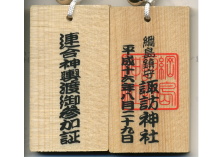 連合神輿渡御参加証
綱島鎮守
諏訪神社
平成十六年八月二十九日
綱島